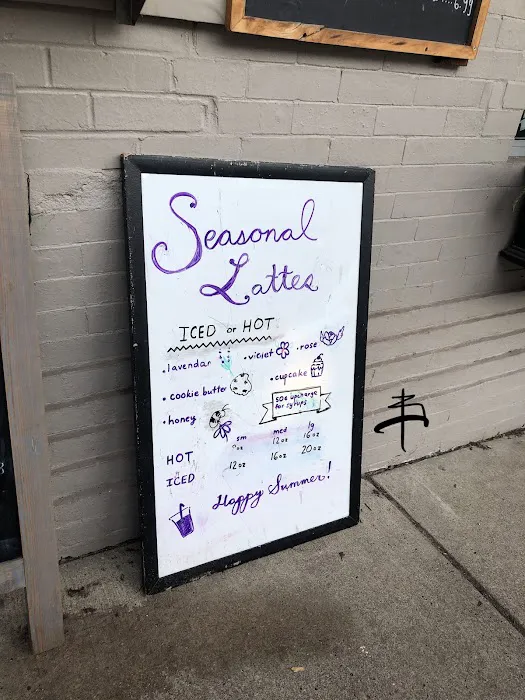 6.99
Seasonal
Lattes
ICED or HOT
• lavendar • violet • rose
• cookie butter • cupcake
• honey
50¢ upcharge
for syrups
sm med lg
HOT oz 12oz 16oz
ICED 12oz 16oz 20oz
Happy Summer!